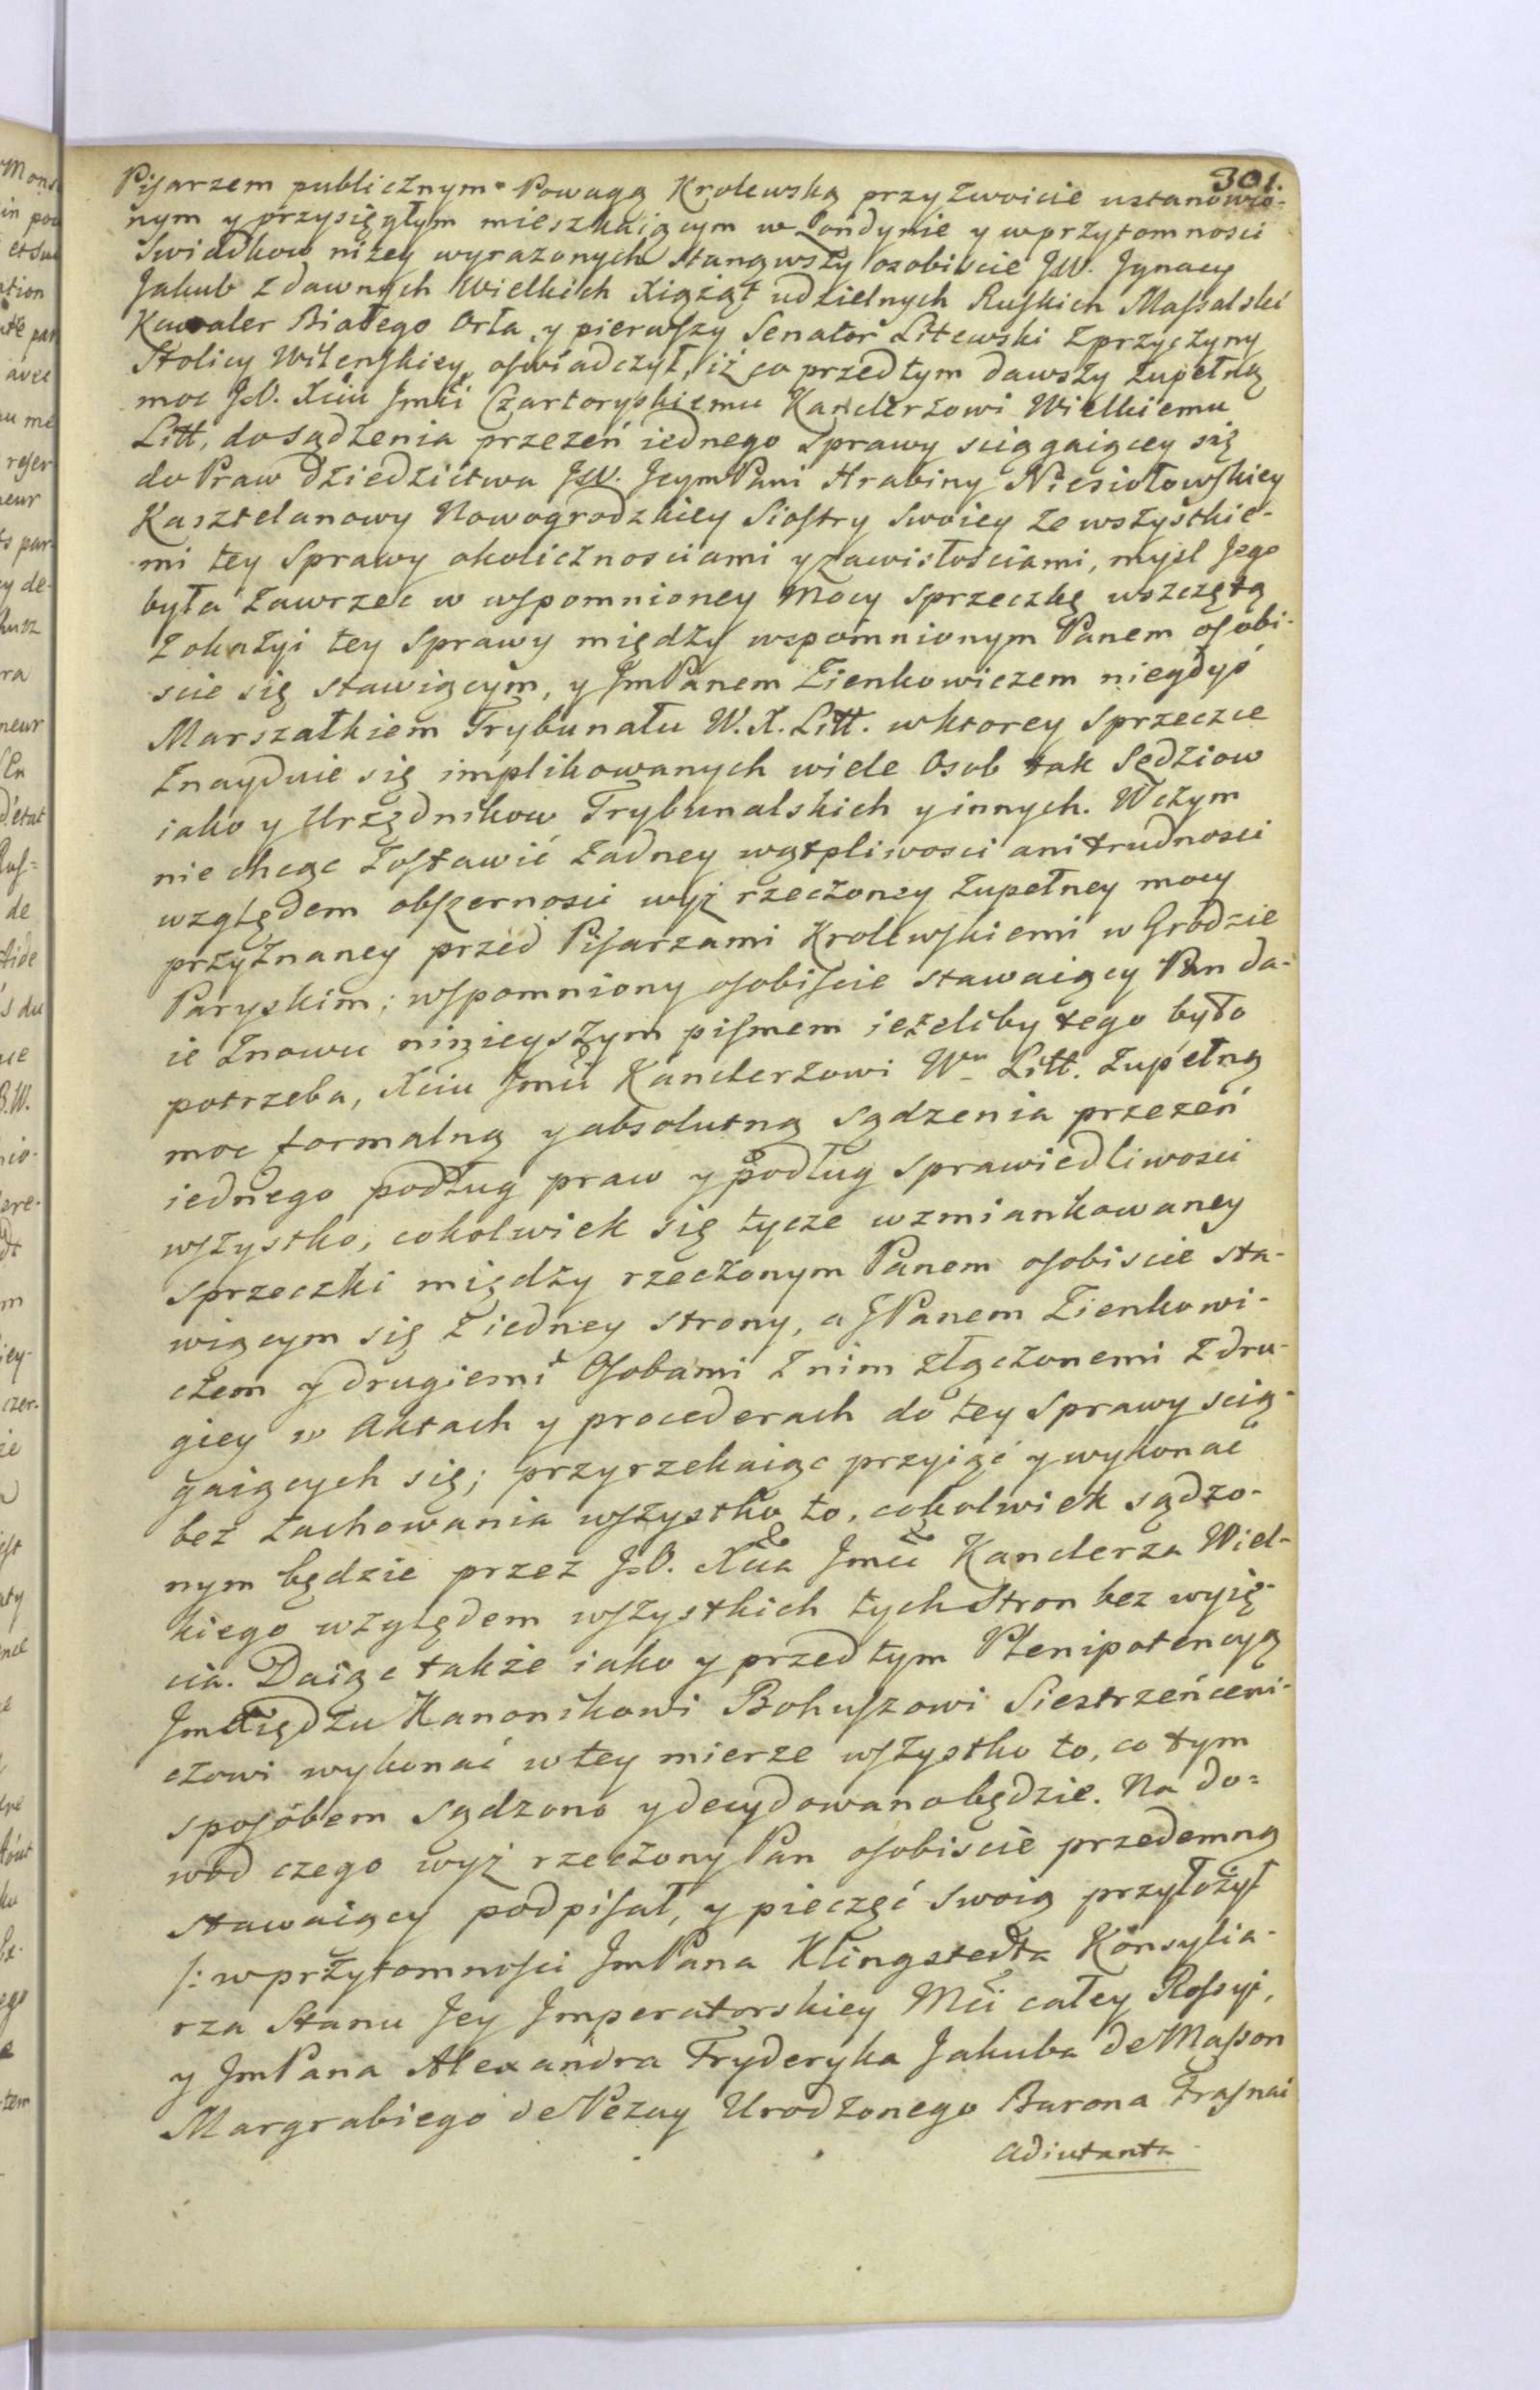 301.
Pisarzem publicznym Powagą Krolewską przyzwoicie ustanowio-
nym y przysięgłym mieszkaiącym w Londynie y w przytomnosci
Swiadkow niżey wyrazonych stanąwszy osobiscie JW. Jgnacy
Jakub z dawnych Wielkich Xiążąt udzielnych Ruskich Massalski
Kawaler Białego Orła, y pierwszy Senator Litewski z przyczyny
Stolicy Wilenskiey, oswiadczył, iż co przed tym dawszy zupełną
moc J.O. Xciu Jmci Czartoryskiemu Kanclerzowi Wielkiemu
Litt, do sądzenia przezeń iednego Sprawy sciągaiącey się
do Praw Dziedzictwa JW. Jeym Pani Hrabiny Niesiołowskiey
Kasztelanowy Nowogrodzkiey Siostry swoiey ze wszystkie-
mi tey Sprawy okolicznosciami y zawisłościami, mysl Jego
była zawrzec w wspomnioney Mocy sprzeczkę wszczętą
z okazyi tey Sprawy między wspomnionym Panem osobi-
scie się stawiącym, y JmPanem Zienkowiczem niegdyś
Marszałkiem Trybunału W.X.Litt. w ktorey sprzeczce
znayduie się implikowanych wiele Osob tak Sędziow
iako y Urzędnikow Trybunalskich y innych. W czym
nie chcąc zostawić żadney wątpliwosci ani trudnosci
względem obszernosci wyż rzeczoney zupełney mocy
przyznaney przed Pisarzami Krolewskiemi w Grodzie
Paryskim; wspomniony osobiscie stawaiący Pan da-
ie znowu ninieyszym pismem ieżeliby tego było
potrzeba, Xciu Jmci Kanclerzowi Wu Litt. zupełną
moc formalną y absolutną sądzenia przezeń
iednego podług praw y podług sprawiedliwosci
wszystko, cokolwiek się tycze wzmiankowaney
sprzeczki między rzeczonym Panem osobiscie sta-
wiącym się z iedney strony, a JPanem Zienkowi-
czem y drugiemi Osobami z nim złączonemi z dru-
giey w Aktach y procederach do tey Sprawy scią-
gaiących się; przyrzekaiąc przyiąć y wykonać
bez zachowania wszystko to, cokolwiek sądzo-
nym będzie przez J.O. Xcia Jmci Kanclerza Wiel-
kiego względem wszystkich tych Stron bez wyię-
cia. Daiąc także iako y przed tym Plenipotencyą
JmXiędzu Kanonikowi Bohuszowi Siestrzeńcewi-
czowi wykonać w tey mierze wszystko to, co tym
sposobem sądzono y decydowano będzie. Na do-
wod czego wyż rzeczony Pan osobiscie przedemną
stawaiący podpisał, y pieczęć swoią przyłożył
/: w przytomnosci JmPana Klingstedta Konsylia-
rza Stanu Jey Jmperatorskiey Mci całey Rossyi,
y JmPana Alexandra Fryderyka Jakuba de Masson
Margrabiego de Pezay Urodzonego Barona Frasnai
Adiutanta